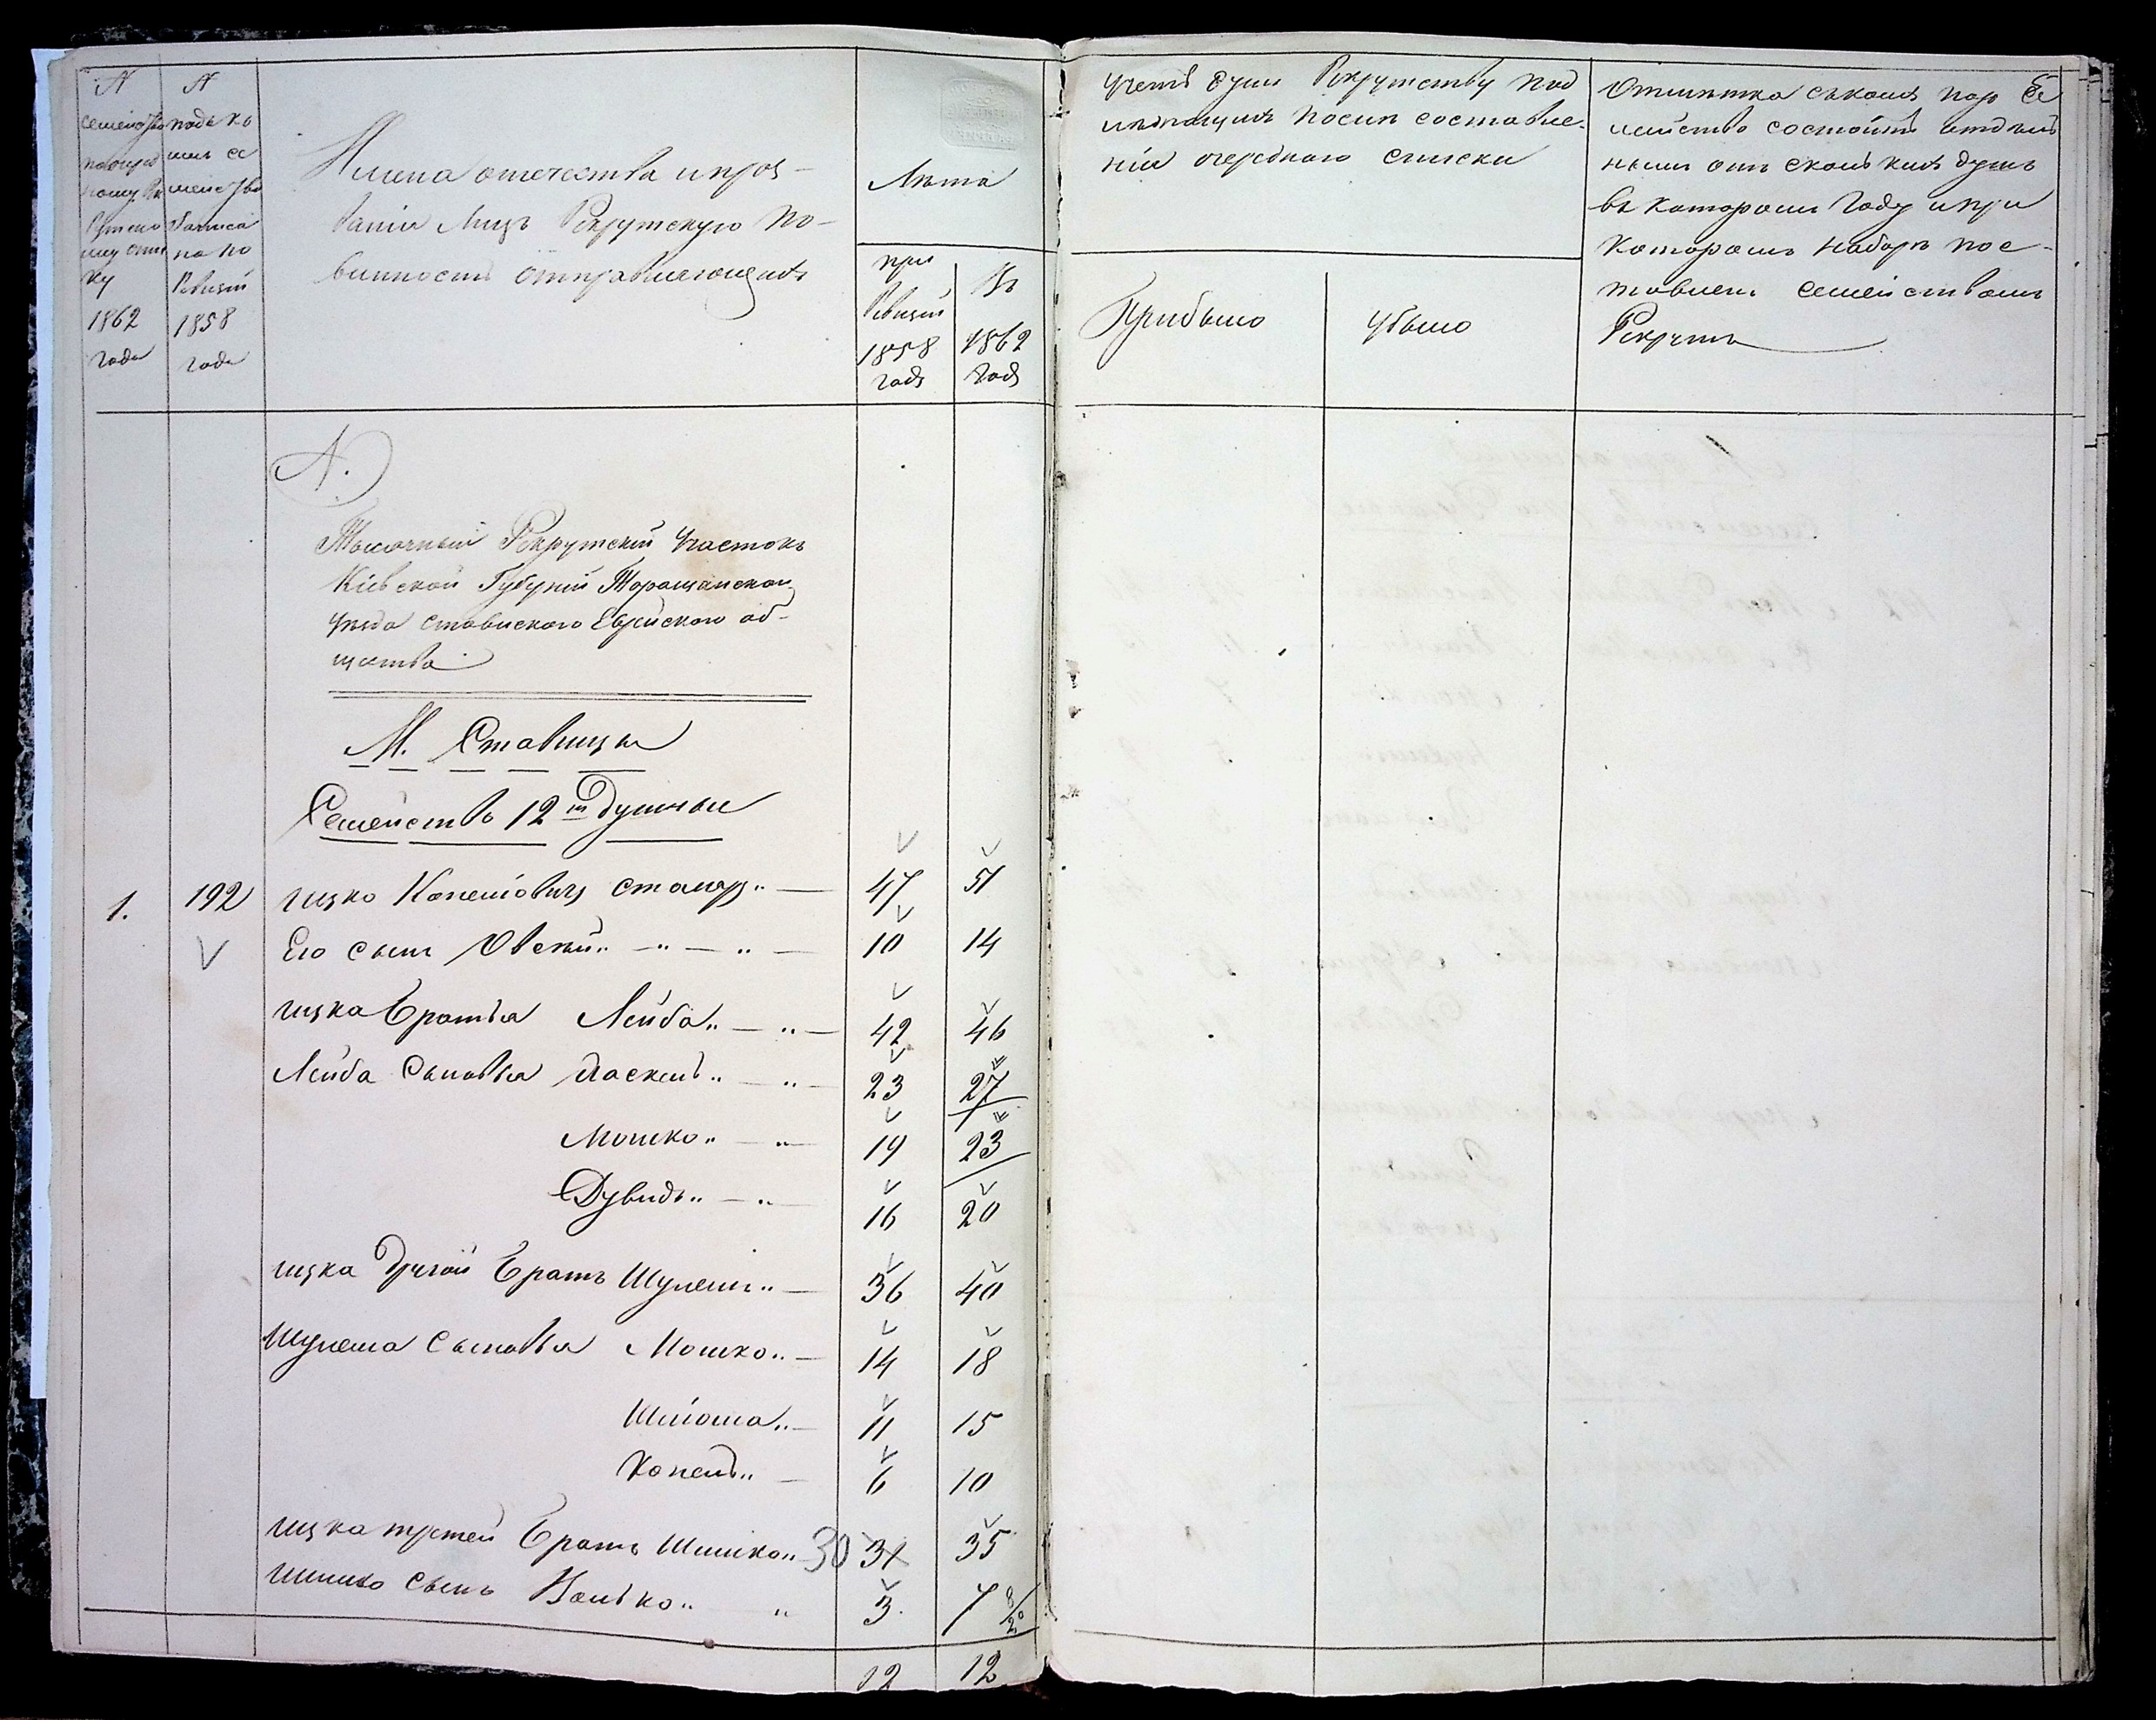 N
семейства
1862
года
N
подъ ко
имъ се
мейство
Записа
но по
Ревизіи
1858
года
Имена отечества и проз-
ванія Лицъ Рекрутскую по-
винность отправляющихъ
Лѣта
при
Ревизіи
1858
годъ
Въ
1862
годъ
Учетъ душъ Рекрутству под
лежащихъ после составле-
нія очереднаго списка
Прибыло
Убыло
Отмѣтка съкакихъ пор Се
мейство состоитъ отдель
нымъ отъ сколькихъ душъ
въ которомъ Году и при
которомъ наборѣ пос-
тавленъ семействомъ
Рекрутъ
А.
Тысячный Рекрутскій Участокъ
Кіевской Губерніи Таращанскаго
Уезда Ставискаго Еврейскаго об-
щества
М. Ставищы
Семейство 12ти Душныи
1. 192 ицко Копелёвичъ столяръ 47 51
Его сынъ Овсѣй 10 14
ицка братья Лейба 42 46
Лейба Сыновья Хаскель 23 27
Мошко 19 23
Дувидъ 16 20
ицка другой братъ Шулемъ 36 40
Шулема сыновья Мошко 14 18
Шлёма 11 15
Копель 6 10
ицка третей братъ Шимко 30 31 35
Шимко сынъ Волько 3 7 8/20
12 12